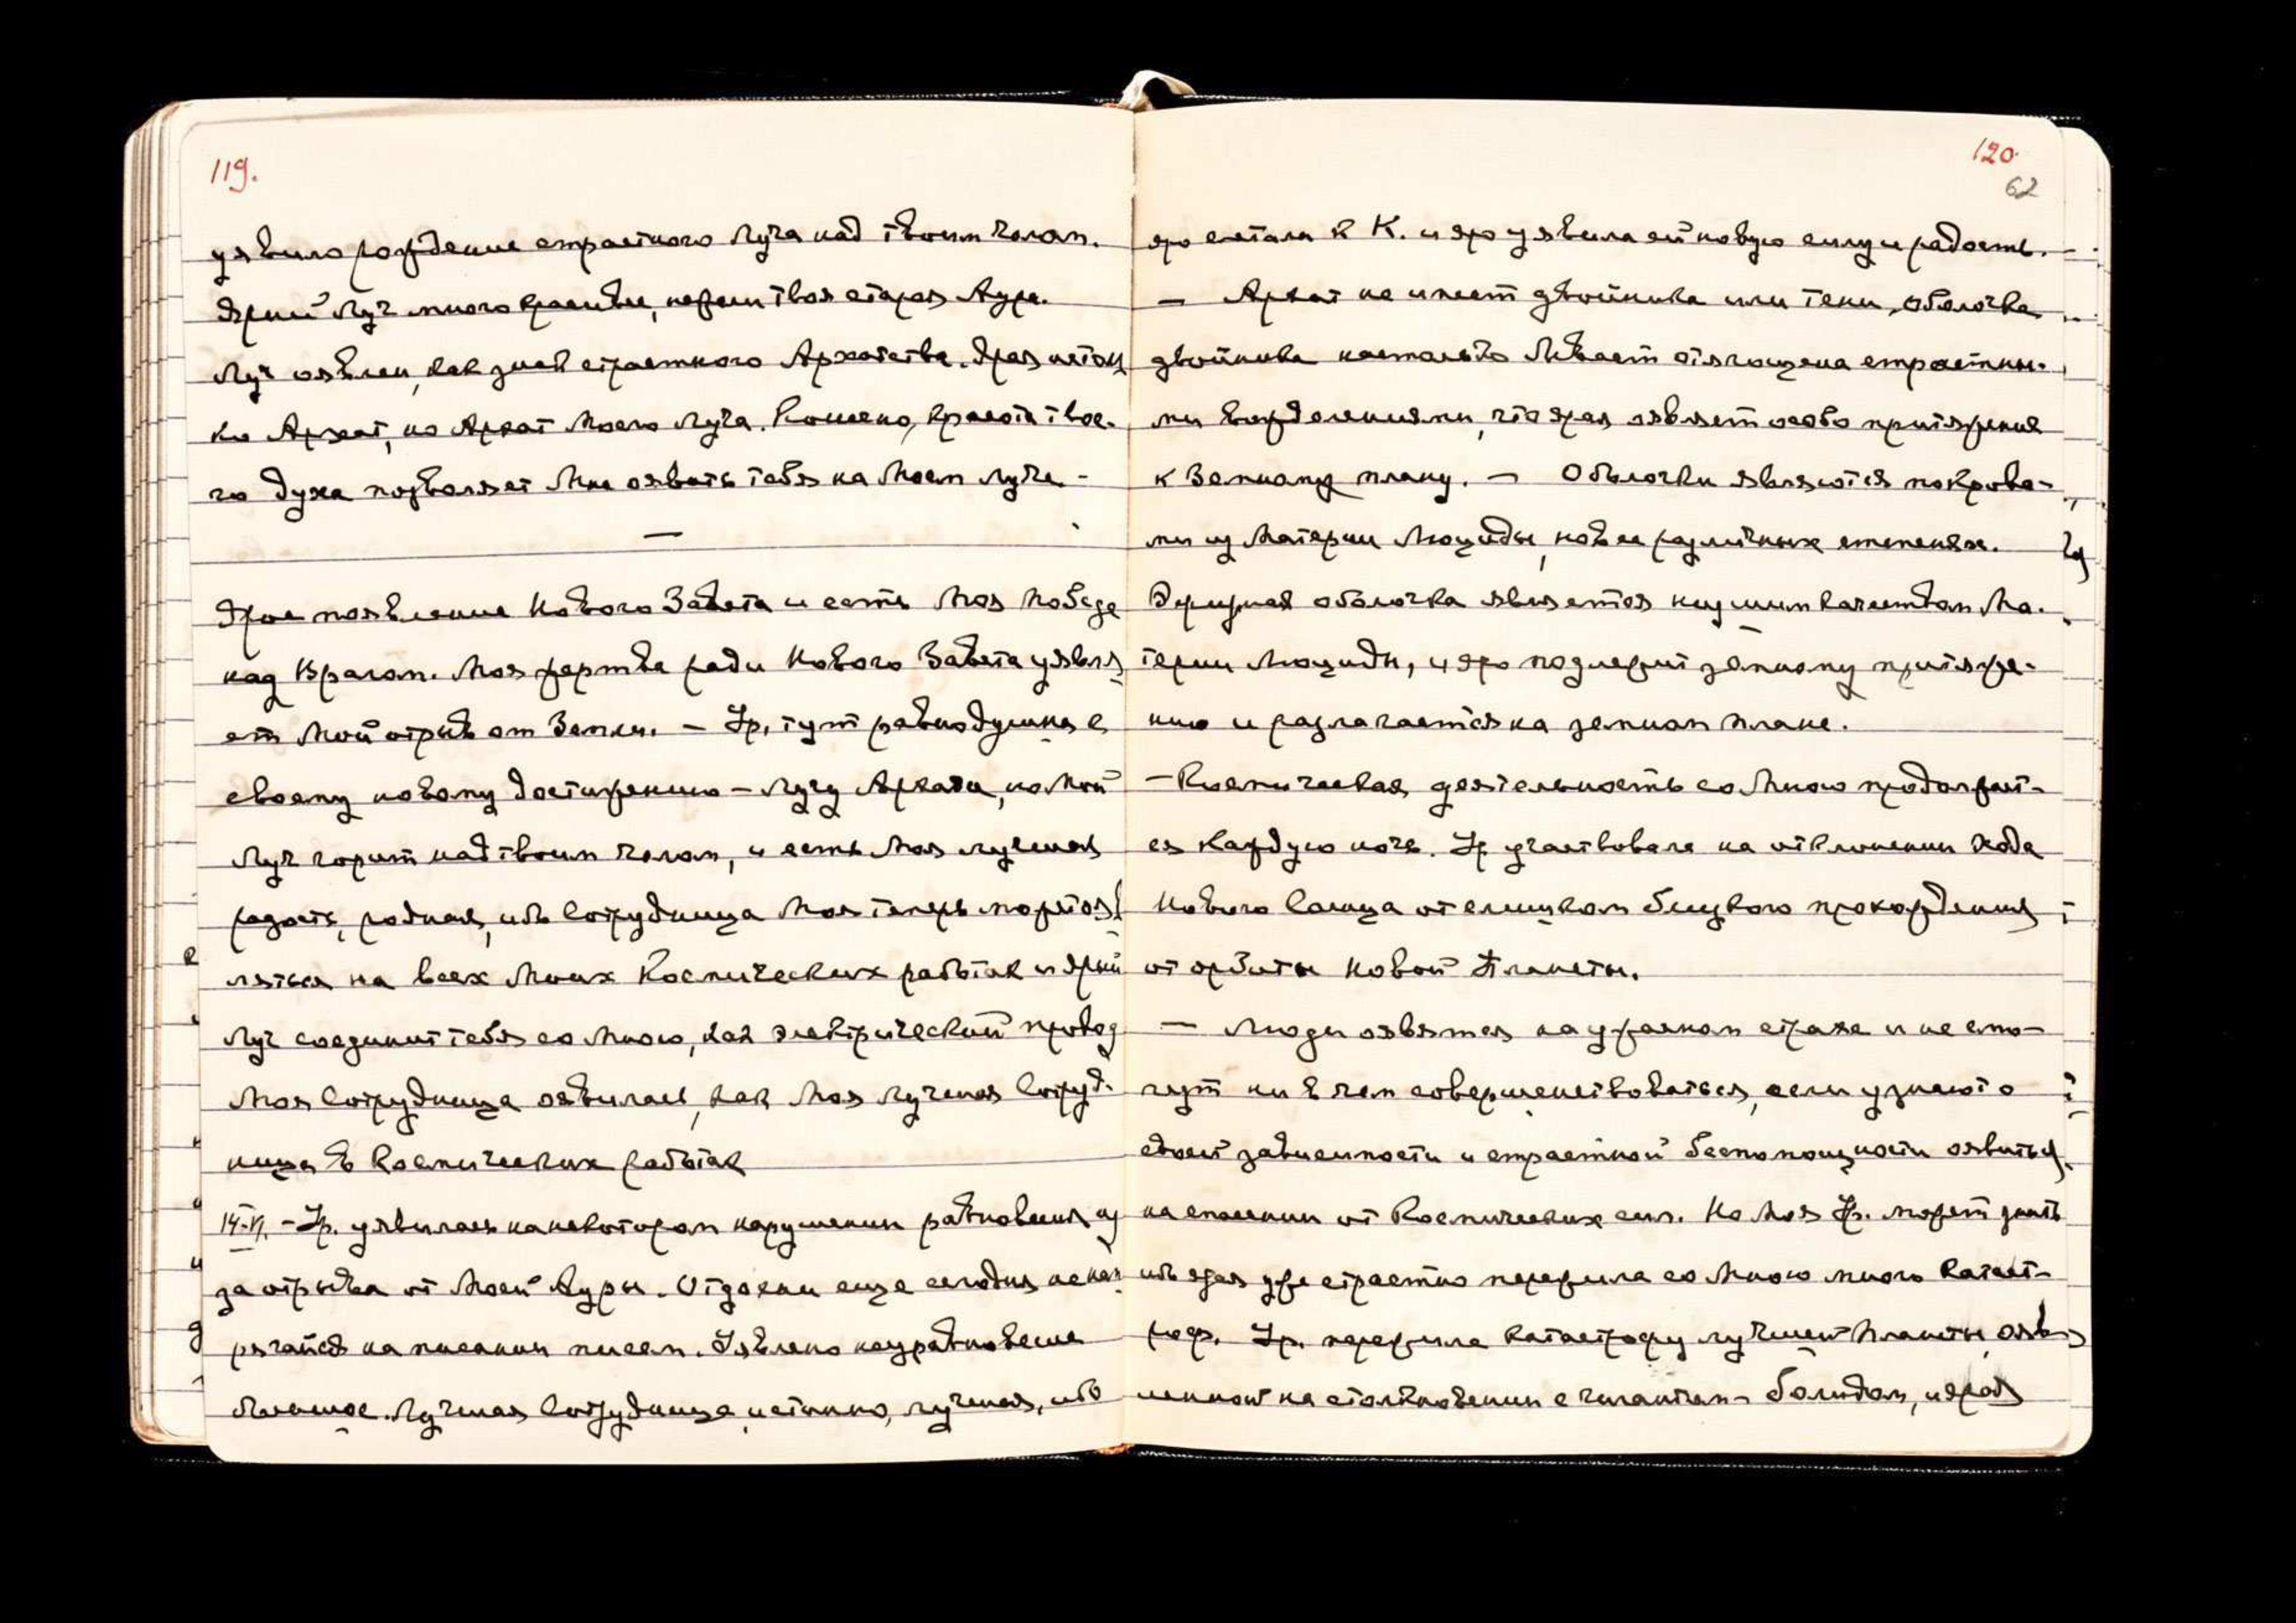 119.
уявило рождение страстного Луча над твоим челом.
Ярый Луч много красивее, нежели твоя старая Аура.
Луч оявлен, как знак страстного Архатства. Ярая не только
Архат, но Архат Моего Луча. Конечно, красота твое-
го духа позволяет Мне оявить тебя на Моем Луче -
—
Ярое появление Нового Завета и есть Моя Победа
над Врагом. Моя жертва ради Нового Завета уявля
ет Мой отрыв от Земли. - Ур. тут равнодушна к
своему новому достижению - Лучу Архата, но Мой
Луч горит над твоим челом, и есть Моя лучшая
радость, родная, ибо Сотрудница Моя теперь может яв
ляться на всех Моих Космических работах и ярый
Луч соединит тебя со Мною, как электрический провод
Моя Сотрудница оявилась, как Моя лучшая Сотруд-
ница в Космических работах
14-VI. - Ур. уявилась на некотором нарушении равновесия из
за отрыва от Моей Ауры. Отдохни еще сегодня не нап
рягайся на писании писем. Уявлено неуравновесие
Лучшая Сотрудница, истинно, лучшая, ибо
120.
62
яро слетала к К. и яро уявила ей новую силу и радость.
— Архат не имеет двойника или тени, оболочка
двойника настолько бывает отягощена страстны-
ми вожделениями, что ярая оявляет особо притяжение
к Земному плану. — Оболочки являются покрова-
ми из Материи Люциды, но в ее различных степенях.
Эфирная оболочка является низшим качеством Ма-
терии Люциды, и яро подлежит земному притяже-
нию и разлагается на земном плане.
- Космическая деятельность со Мною продолжает-
ся каждую ночь. Ур участвовала на отклонении хода
Нового Солнца от слишком близкого прохождения
от орбиты Новой Планеты.
— Люди оявятся на ужасном страхе и не смо-
гут ни в чем совершенствоваться, если узнают о
своей зависимости и страстной беспомощности оявиться
на спасении от Космических сил. Но Моя Ур. может знать
ибо ярая уже страстно пережила со Мною много катаст-
роф. Ур. пережила катастрофу лучшей Планеты, ояв
ленной на столкновении с гигантом-болидом, и ярая